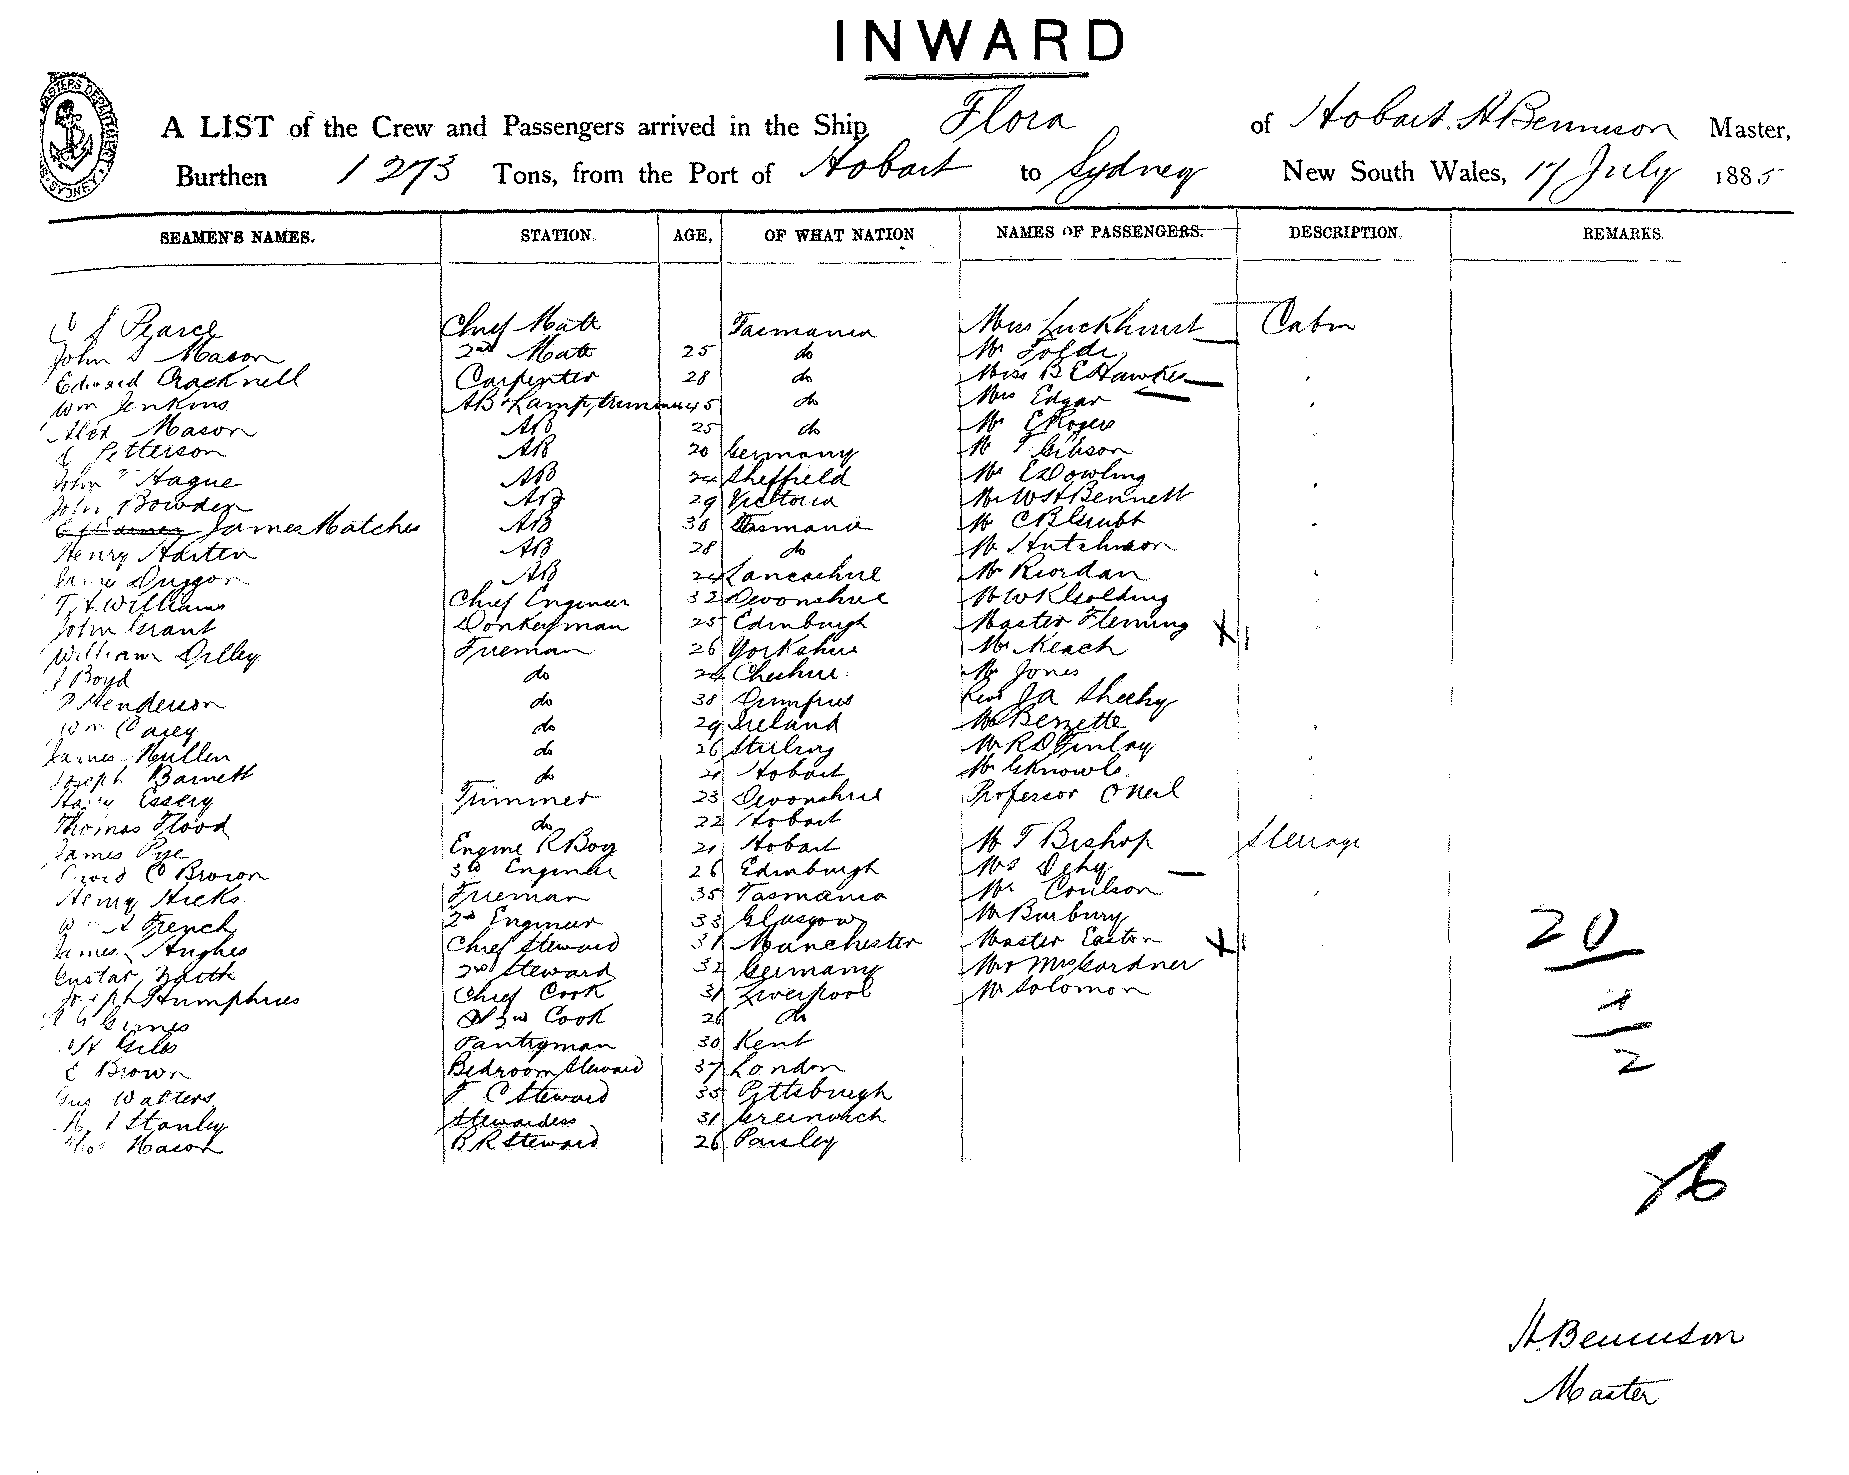 INWARD
A LIST of the Crew and Passengers arrived in the Ship Flora of Hobart. H Bennison Master,
Burthen 1273 Tons, from the Port of Hobart to Sydney New South Wales, 17 July 1885
SEAMEN'S NAMES. STATION. AGE. OF WHAT NATION NAMES OF PASSENGERS. DESCRIPTION. REMARKS.
J Pearce Chief Mate Tasmania Luckhurst Cabin
John S Mason 2nd Mate 25 do Mr
Edward Cracknell Carpenter 28 do Miss B E Hawkes
Wm Jenkins AB & Lamptrimmer 45 do Mrs Edgar
Alex Mason AB 25 do Mr E Rogers
Petterson AB 20 Germany Mr T Gibson
John Hague AB 24 Sheffield Mr E Dowling
John Bowden AB 29 Victoria Mr W H Bennett
James Matches AB 30 Tasmania Mr C B Grubb
Henry Harten AB 28 do Mr Hutchinson
Duggan AB 24 Lancashire Mr Riordan
T. H. Williams Chief Engineer 32 Devonshire Mr W K Golding
John Grant Donkeyman 25 Edinburgh Master Fleming X
William Dilley Fireman 26 Yorkshire Mr Keach
J Boyd do 24 Cheshire Mr Jones
Henderson do 30 Dumfries Revd J A Sheehy
Wm Casey do 29 Ireland Berzette
James Mullen do 26 Stirling Mr R D Finlay
Joseph Barnett do 21 Hobart Mr G Knowls
Harry Essery Trimmer 23 Devonshire Professor O'Neil
Thomas Flood do 22 Hobart
James Pye Engine R Boy 21 Hobart Mr T Bishop Steerage
David C Brown 3rd Engineer 26 Edinburgh Mrs
Henry Hicks Fireman 35 Tasmania Mr Coulson
French 2nd Engineer 33 Glasgow Mr Burbury
James Hughes Chief Steward 31 Manchester Master Easton X
Gustav 2nd Steward 32 Germany Mr & Mrs Gardner
Joseph Humphries Chief Cook 31 Liverpool Mr Solomon
2nd Cook 26 do
Giles Pantryman 30 Kent
Brown Bedroom Steward 37 London
Gus Walters F C Steward 35 Pittsburgh
Stanley Stewardess 31 Greenwich
Mason B R Steward 26 Paisley
20
2
H. Bennison
Master